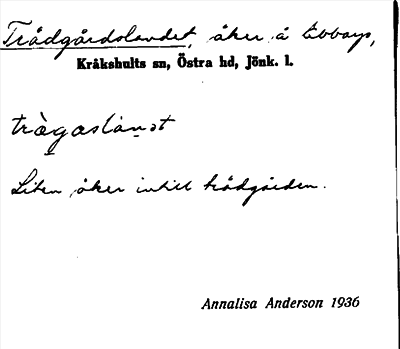 Trädgårdslandet, åker å Ebbarp,
Kråkshults sn, Östra hd, Jönk. l.
Liten åker intill trädgården.
Annalisa Anderson 1936